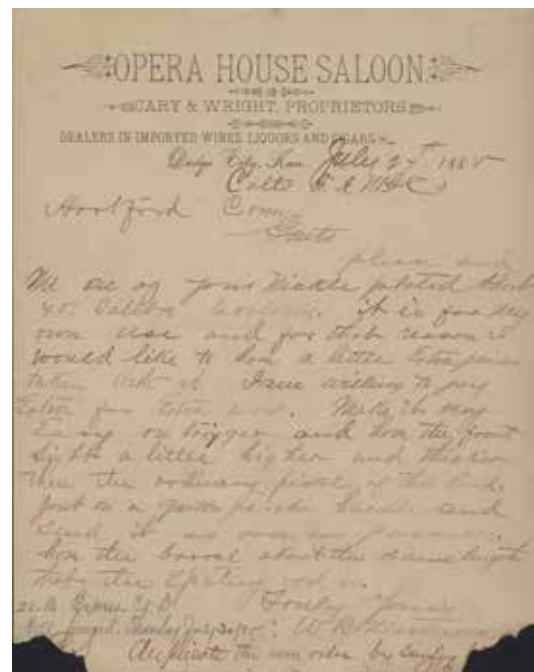 OPERA HOUSE SALOON
CARY & WRIGHT, PROPRIETORS
DEALERS IN IMPORTED WINES, LIQUORS AND CIGARS
Dodge City, Kan. July 24th 1885
Colts F. A. Mfg Co
Hartford Conn
Gents
please send
Me one of your Nickle plated short
45. Calibre it is for my
own use and for that reason I
would like to have a little Extra pains
taken with it. I am willing to pay
Extra for Extra work. Make it very
Easy on trigger and have the front
Sight a little higher and thicker
than the ordinary pistol of this kind.
put on a gutta percha handle and
send it as soon as possible.
have the barrel about the same length
that the ejecting rod is.
Truly Yours
W B Masterson
Duplicate the above order by sending